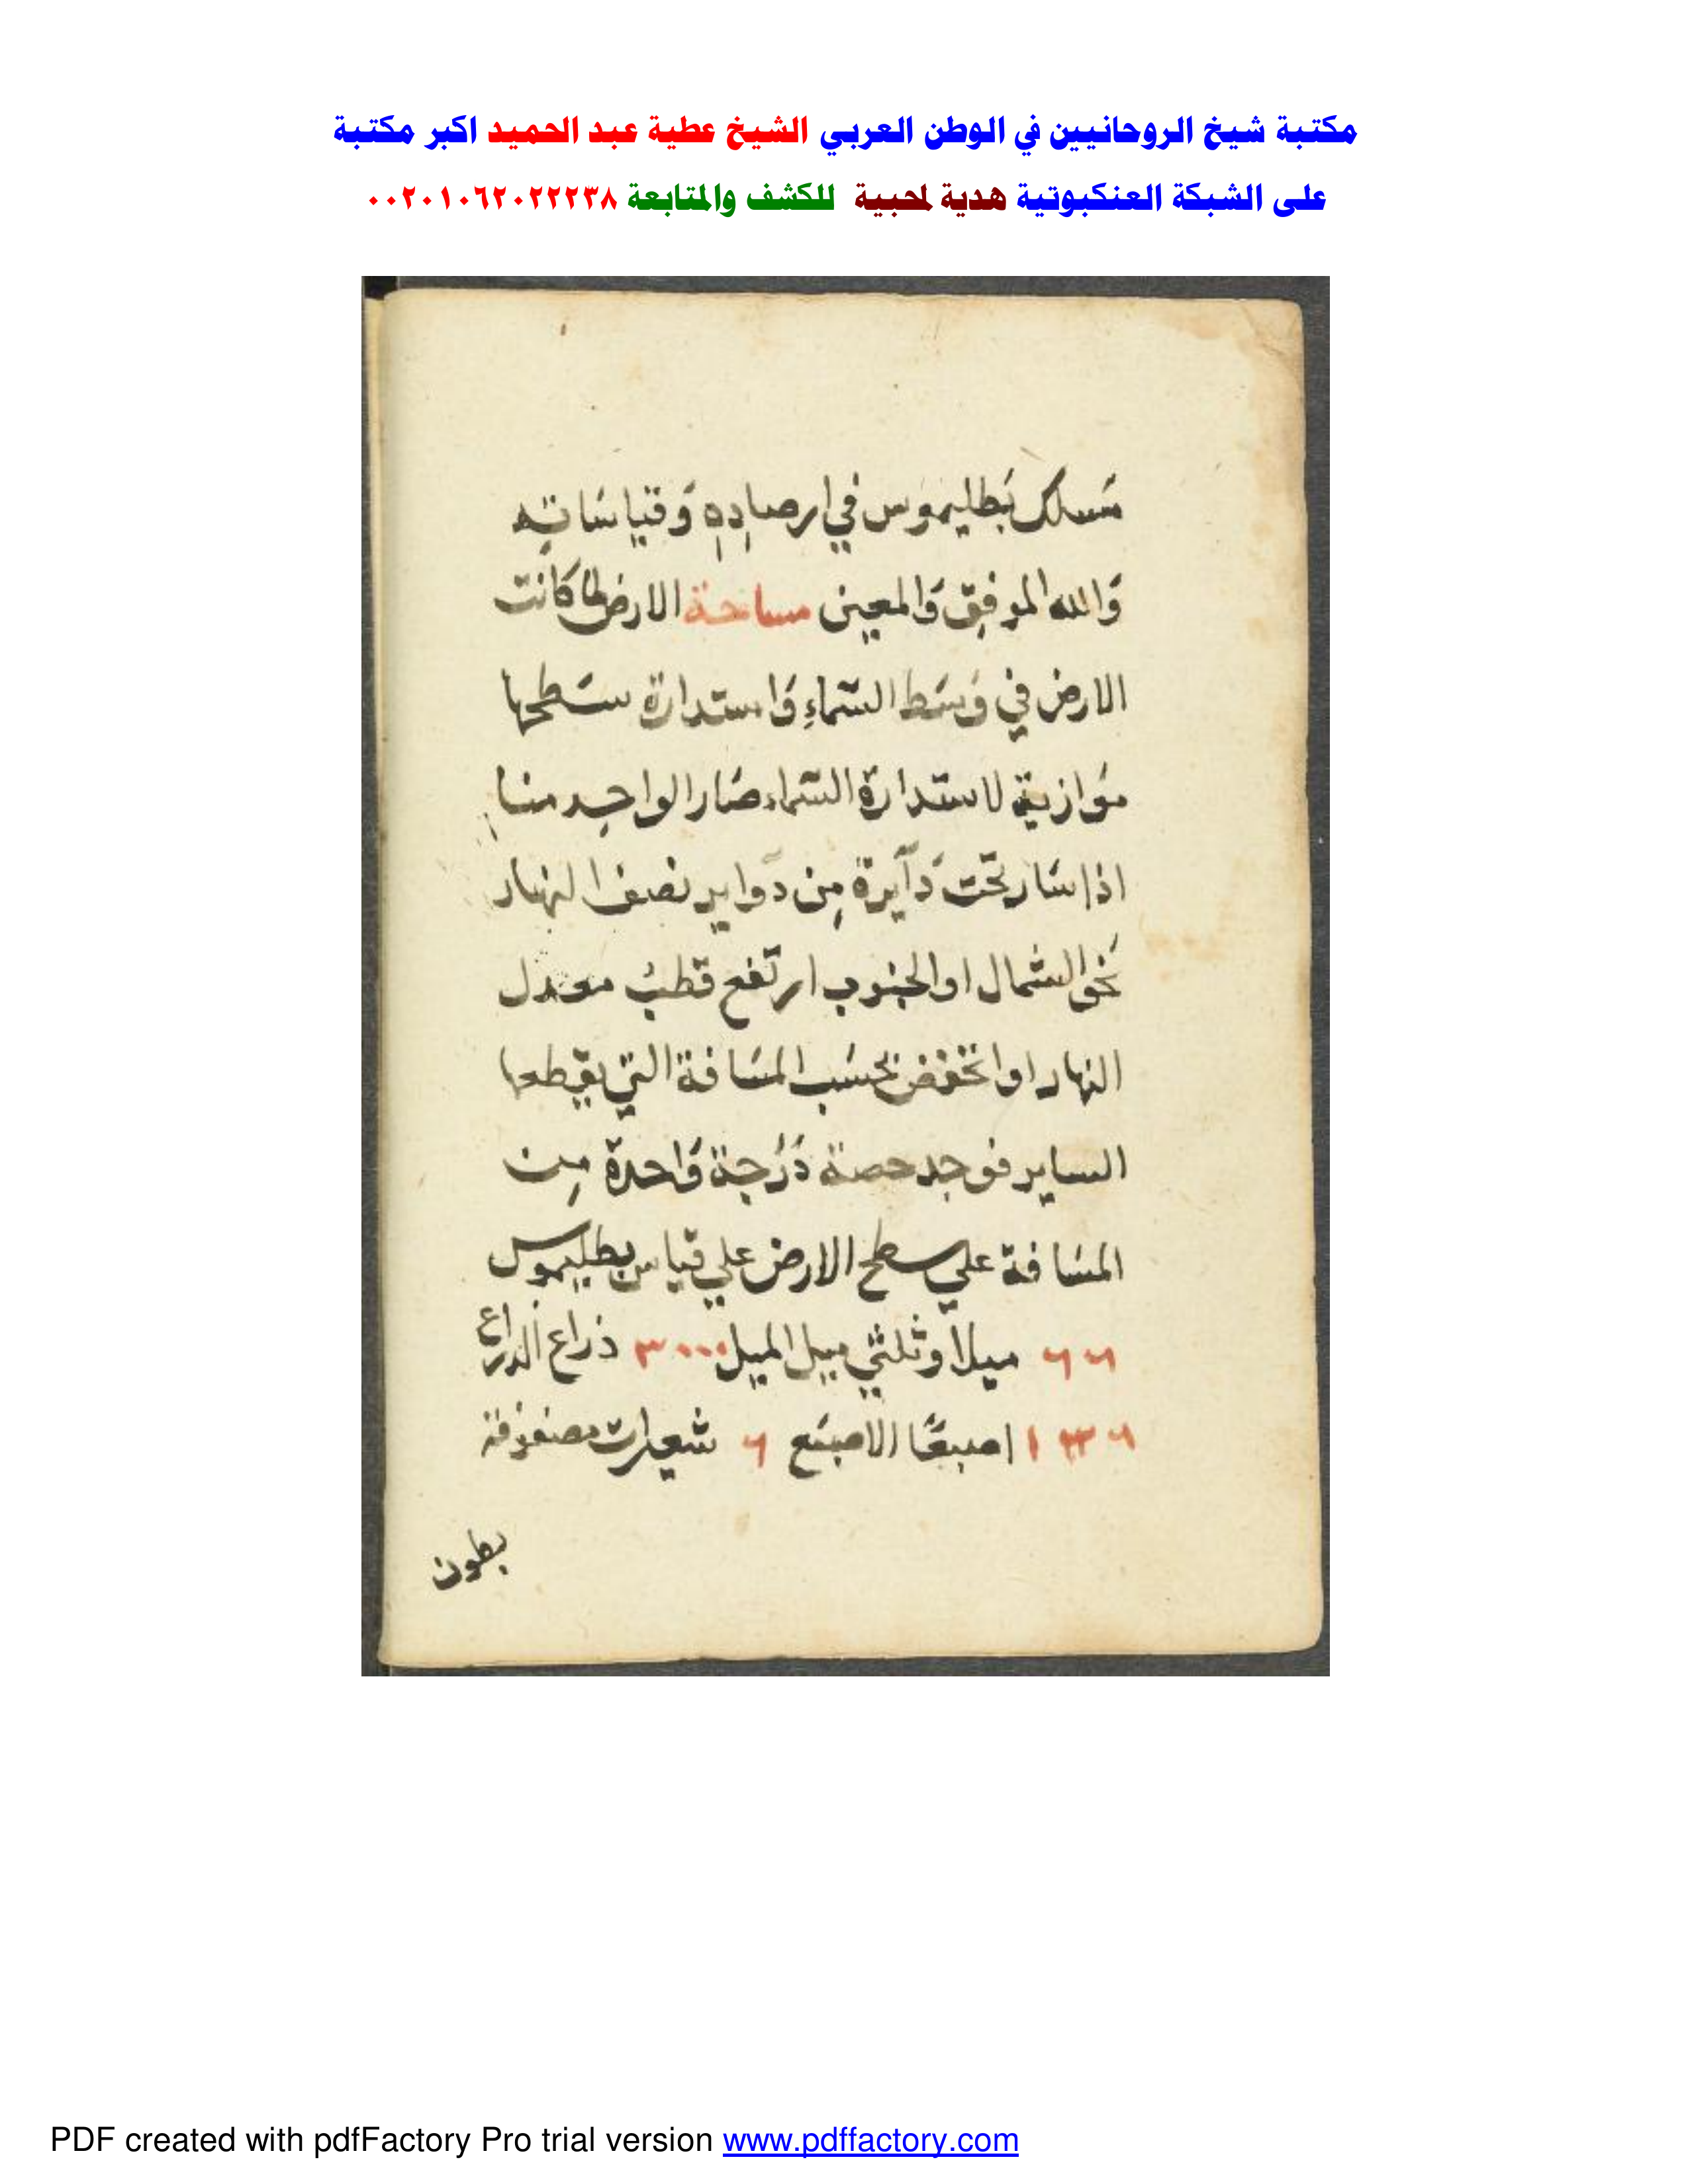 مكتبة شيخ الروحانيين في الوطن العربي الشيخ عطية عبد الحميد اكبر مكتبة
على الشبكة العنكبوتية هدية لمحبية للكشف والمتابعة ٠٠٢٠١٠٦٢٠٢٢٢٣٨
مَسلك بَطليموس في ارصادِهِ وَقياسَاتِه
وَالله الموفِق وَالمعين مساحة الارض لما كانت
الارض في وَسَط السّماءِ وَاستدارة سَطحها
موَازية لاستدارة السّماء صَار الواحِد منا
اذا سَار تحت دَآيرة مِن دَواير نصف النهار
نحَو الشمال او الجنوب ارتفع قطبُ معدل
النهار او انخفض بحسَب المسَافة التي يقطعها
الساير فوجد حصة دَرَجة وَاحدة مِن
المسَافة علي سطح الارض علي قياس بطليموس
٦٦ ميلاً وثلثي ميل الميل ٣٠٠٠ ذراع الذراع
١٣٦ اصبعًا الاصبَع ٦ شعيرات مصفوفة
بطون
PDF created with pdfFactory Pro trial version www.pdffactory.com